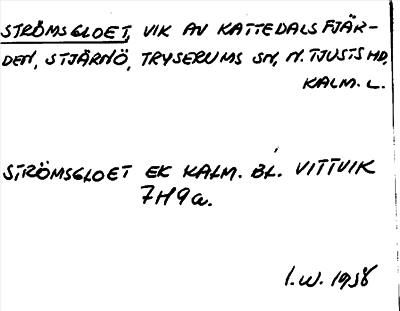 STRÖMSGLOET, VIK AV KATTEDALSFJÄR-
DEN, STJÄRNÖ, TRYSERUMS SN, N. TJUSTS HD,
KALM. L.
STRÖMSGLOET EK KALM. BL. VITTVIK
7H9a.
I.W. 1958